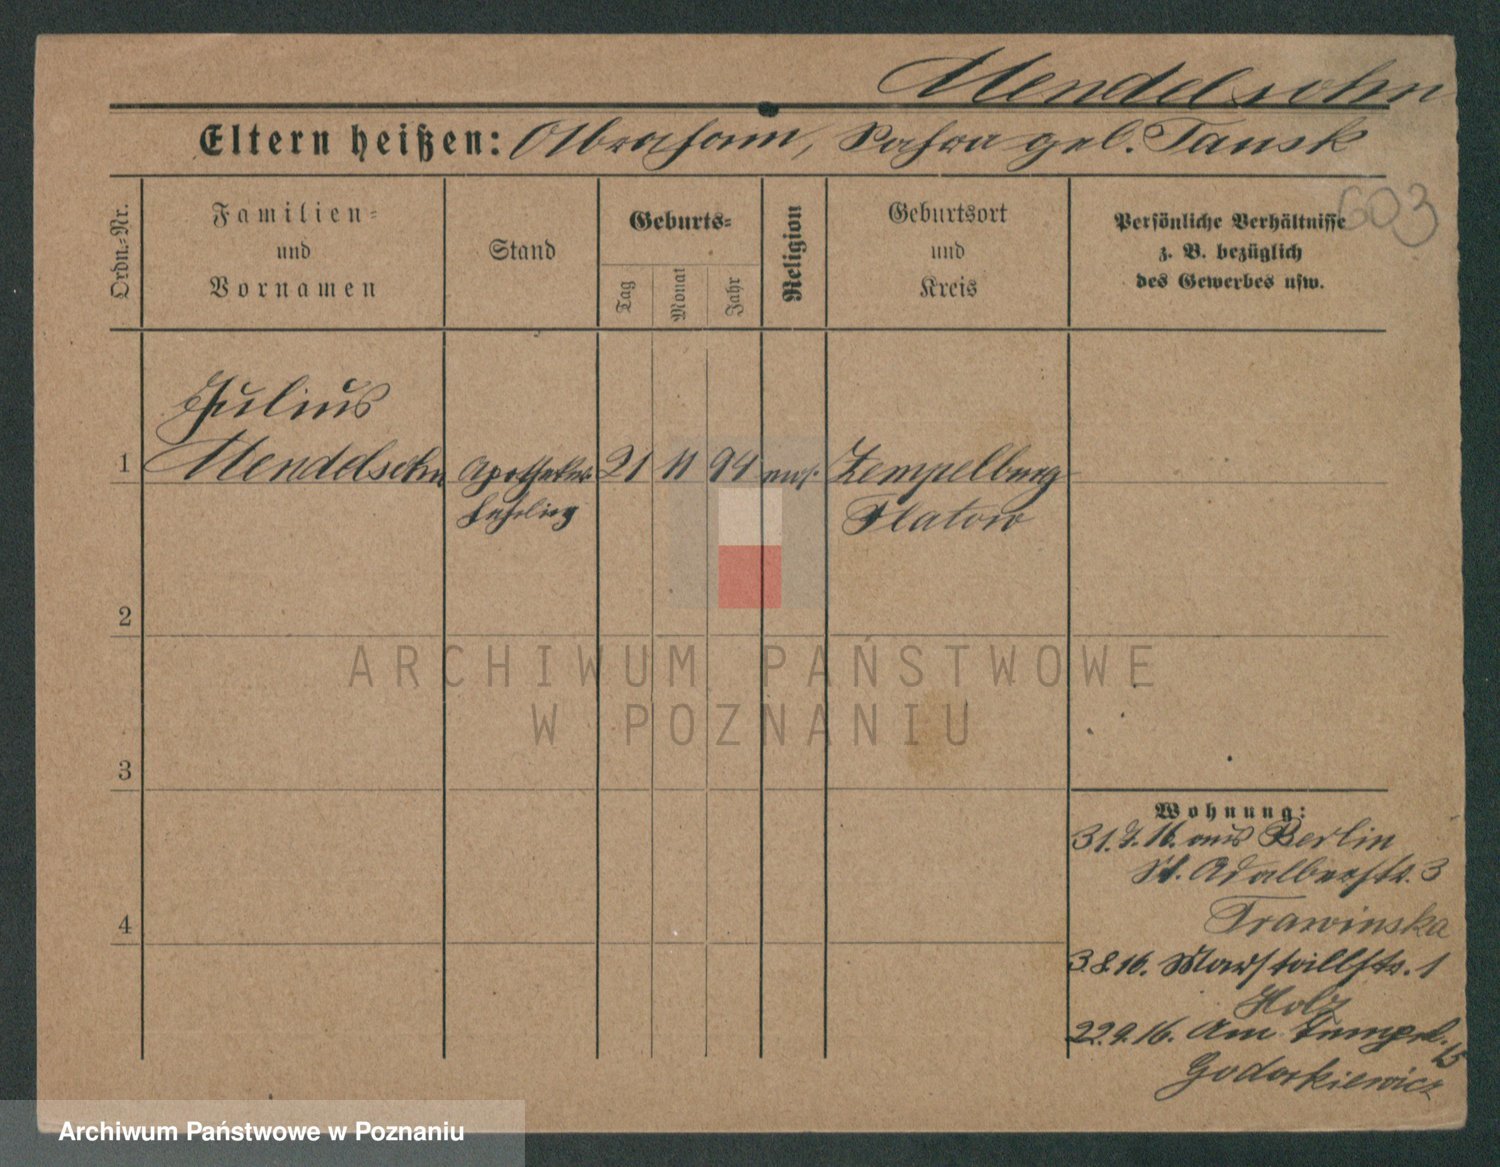 Mendelsohn
Eltern heißen: Abraham, Sahra geb. Tausk
603
Ordn.=Nr.
Familien=
und
Vornamen
Stand
Geburts=
Tag
Monat
Jahr
Religion
Geburtsort
und
Kreis
Persönliche Verhältnisse
z. B. bezüglich
des Gewerbes usw.
Julius
1 Mendelsohn Apotheker 21 11 94 mos. Zempelburg
Lehrling Flatow
2
3
4
ARCHIWUM PAŃSTWOWE
W POZNANIU
Wohnung:
31.7.16. aus Berlin
St. Adalbertstr. 3
Trawinska
3.8.16. Marstallstr. 1
Holz
22.9.16. Am Tempel.
15
Godorkiewicz
Archiwum Państwowe w Poznaniu